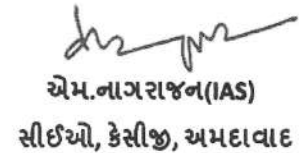 એમ.નાગરાજન(IAS)
સીઈઓ, કેસીજી, અમદાવાદ